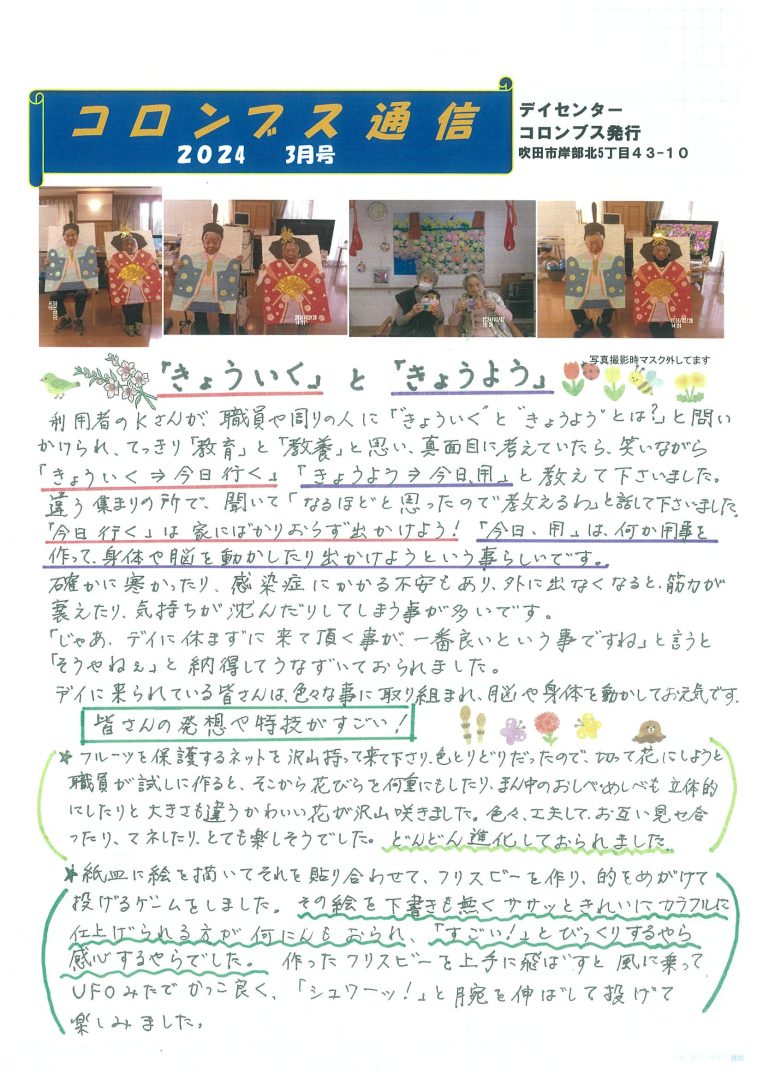 コロンブス通信
2024 3月号
デイセンター
コロンブス発行
吹田市岸部北5丁目43-10
写真撮影時マスク外してます
「きょういく」と「きょうよう」
利用者のKさんが、職員や周りの人に「"きょういく"と"きょうよう"とは?」と問い
かけられ、てっきり「教育」と「教養」と思い、真面目に考えていたら、笑いながら
「きょういく⇒今日行く」「きょうよう⇒今日、用」と教えて下さいました。
違う集まりの所で、聞いて「なるほどと思ったので教えるわ」と話して下さいました。
「今日行く」は家にばかりおらず出かけよう!「今日、用」は、何か用事を
作って、身体や脳を動かしたり出かけようという事らしいです。
確かに寒かったり、感染症にかかる不安もあり、外に出なくなると、筋力が
衰えたり、気持ちが沈んだりしてしまう事が多いです。
「じゃあ、デイに休まずに来て頂く事が、一番良いという事ですね」と言うと
「そうやねぇ」と納得してうなずいておられました。
デイに来られている皆さんは、色々な事に取り組まれ、脳や身体を動かしてお元気です。
皆さんの発想や特技がすごい!
★フルーツを保護するネットを沢山持って来て下さり、色とりどりだったので、切って花にしようと
職員が試しに作ると、そこから花びらを何重にもしたり、まん中のおしべ・めしべも立体的
にしたりと大きさも違うかわいい花が沢山咲きました。色々、工夫して、お互い見せ合
ったり、マネしたり、とても楽しそうでした。どんどん進化しておられました。
★紙皿に絵を描いてそれを貼り合わせて、フリスビーを作り、的をめがけて
投げるゲームをしました。その絵を下書きも無くササッときれいにカラフルに
仕上げられる方が何にんもおられ、「すごい!」とびっくりするやら
感心するやらでした。作ったフリスビーを上手に飛ばすと風に乗って
UFOみたでかっこ良く、「シュワーッ!」と腕を伸ばして投げて
楽しみました。